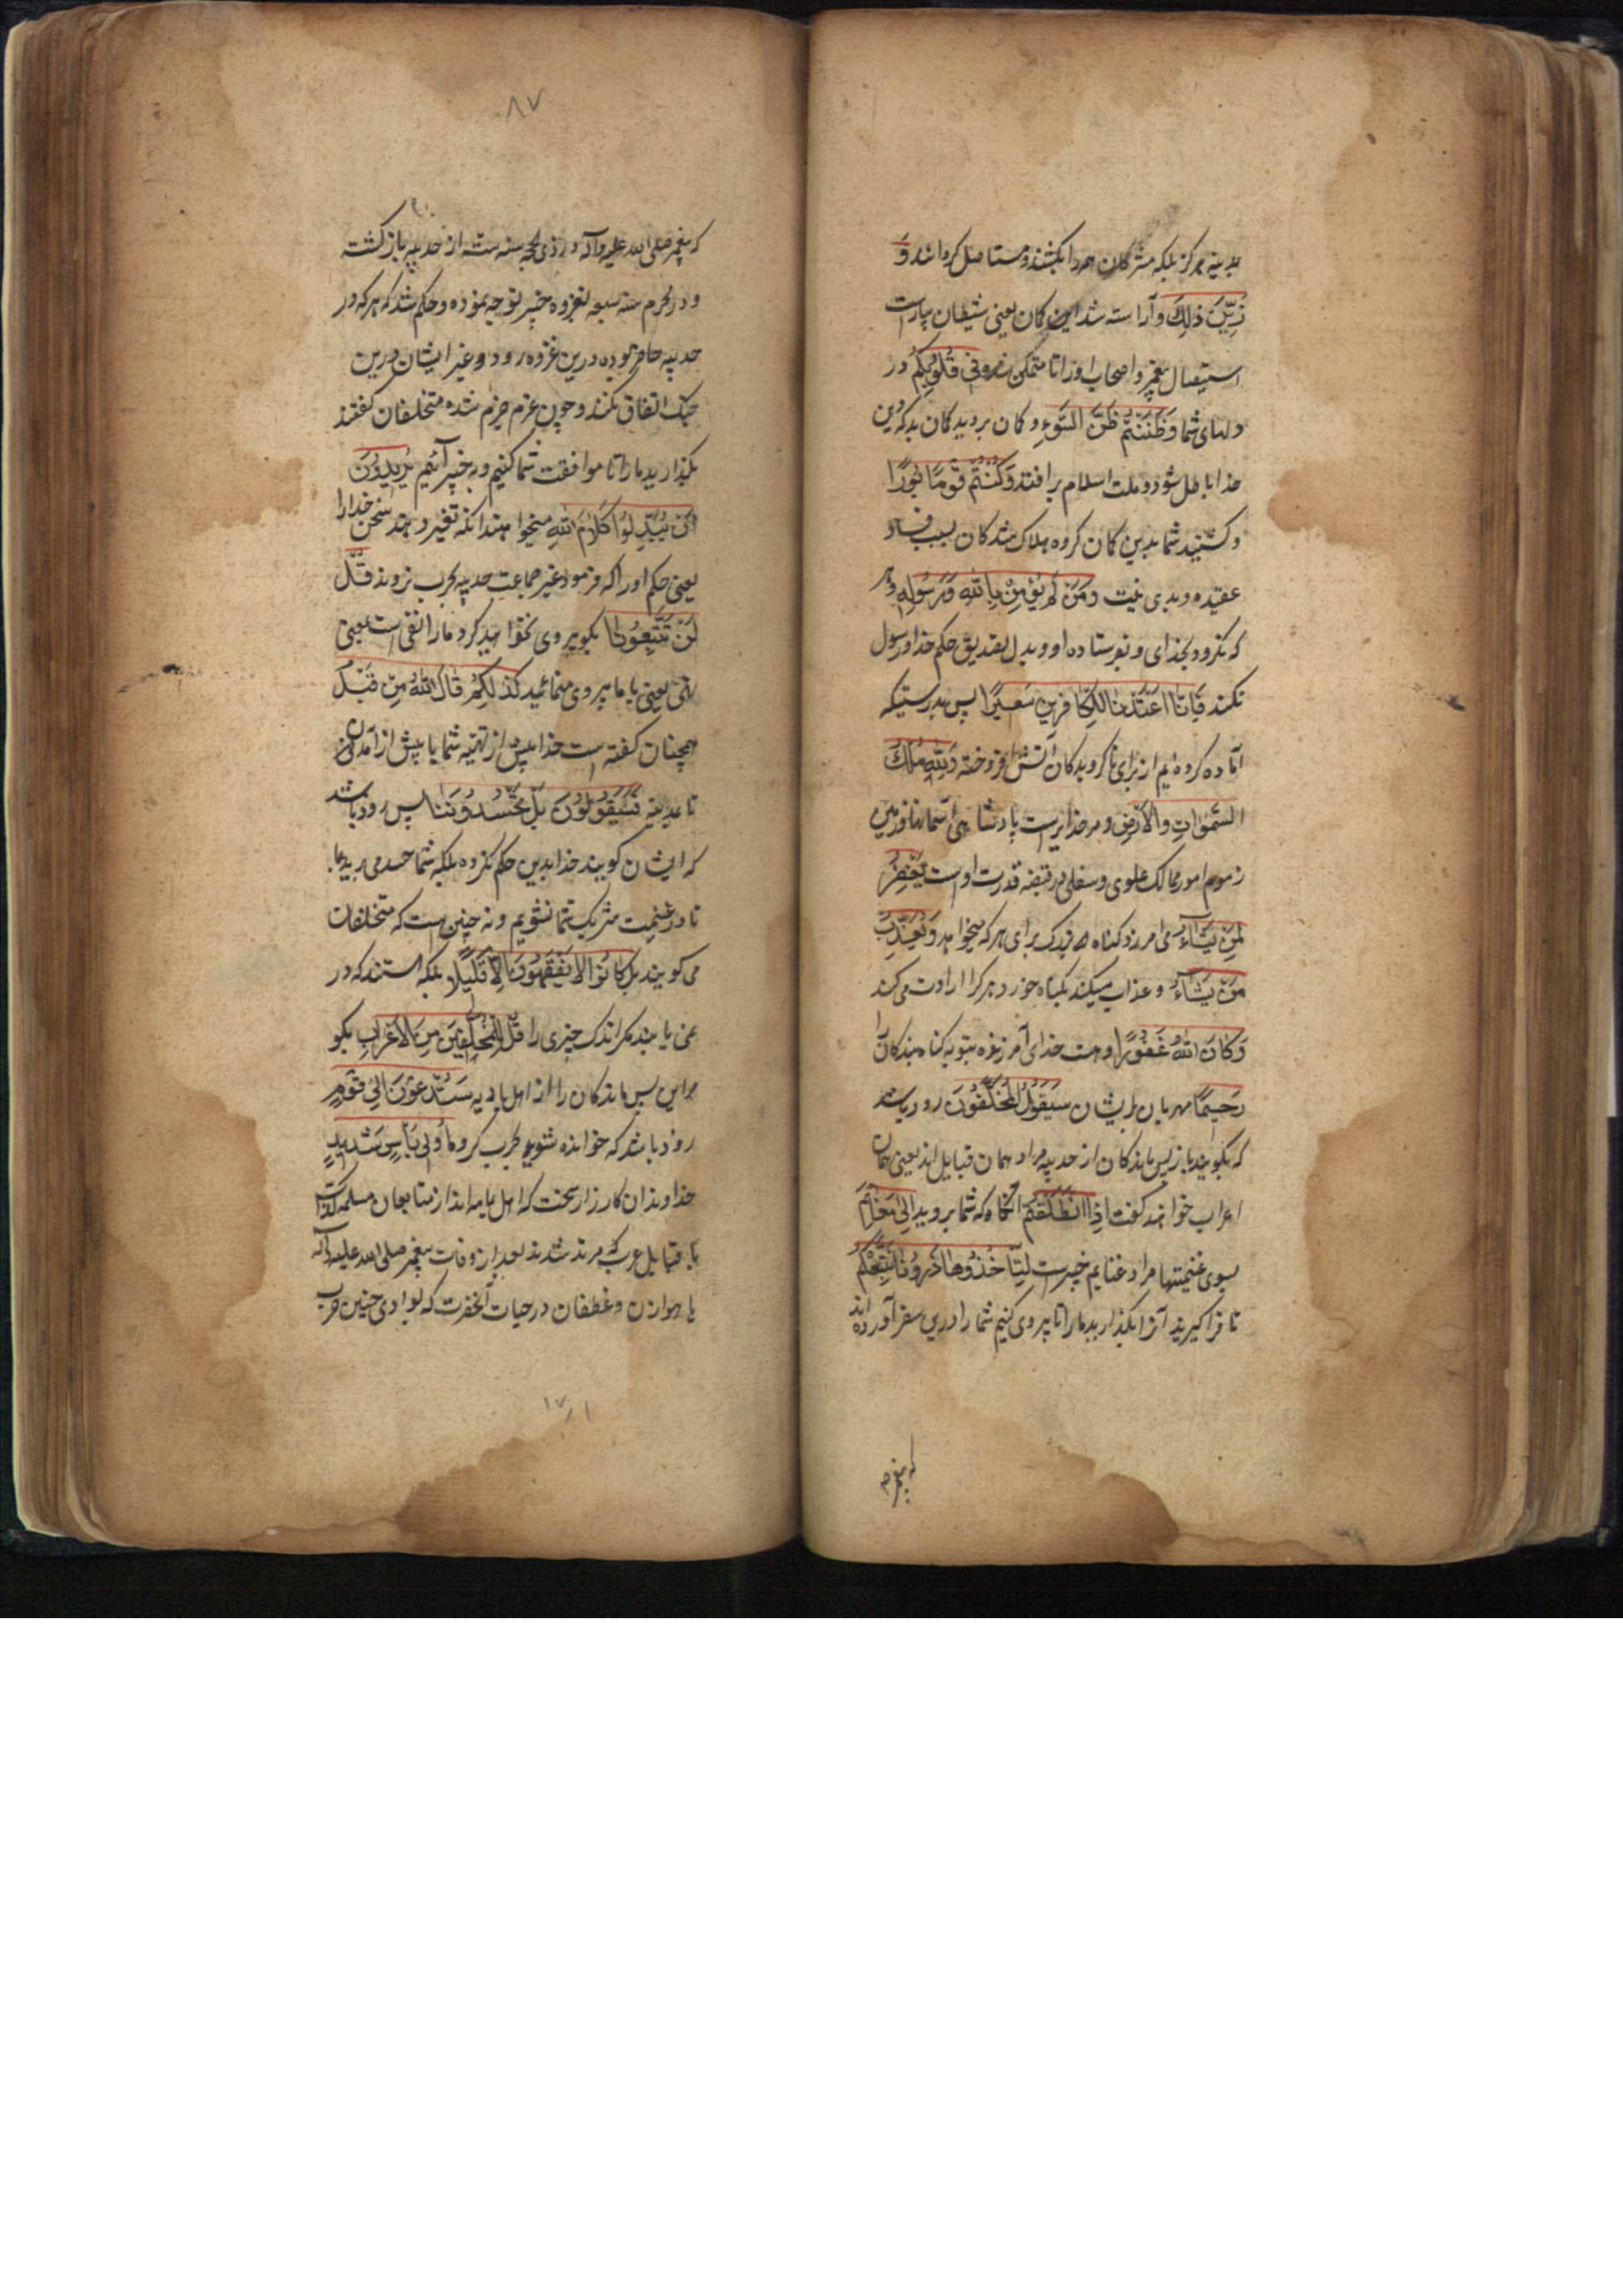 مدینه هرگز بلکه مشرکان همه را بکشند و مستاصل گردانند وَ
زُیِّنَ ذلِکَ و آراسته شد این گمان یعنی شیطان بیاراست
استیصال پیغمبر و اصحاب او را تا متمکن شد فِی قُلُوبِکُمْ در
دلهای شما وَظَنَنْتُمْ ظَنَّ السَّوْءِ و گمان بردید گمان بد که دین
خدا باطل شود و ملت اسلام برافتد وَکُنْتُمْ قَوْمًا بُورًا
و گشتید شما بدین گمان گروه هلاک شدگان بسبب فساد
عقیده و بدی نیت وَمَنْ لَمْ یُؤْمِنْ بِاللهِ وَرَسُولِهِ و هر
که نگرود بخدای و بفرستاده او و بدل تصدیق حکم خدا و رسول
نکند فَاِنَّا اَعْتَدْنَا لِلْکَافِرِینَ سَعِیرًا پس بدرستیکه
آماده کرده‌ایم از برای ناگرویدگان آتش افروخته وَلِلّهِ مُلْکُ
السَّموَاتِ وَالْاَرْضِ و مر خدایراست پادشاهی آسمانها و زمین
زمام امور ممالک علوی و سفلی در قبضه قدرت اوست یَغْفِرُ
لِمَنْ یَشَاءُ می امرزد گناه برای هر که میخواهد وَیُعَذِّبُ
مَنْ یَشَاءُ و عذاب میکند بگناه خورد هر کرا ارادت می کند
وَکَانَ اللهُ غَفُورًا و هست خدای آمرزنده بتوبه گناه بندگان را
رَحِیمًا مهربان بر ایشان سَیَقُولُ الْمُخَلَّفُونَ زود باشد
که بگویند بازپس ماندگان از حدیبیه مراد همان قبایل‌اند یعنی همان
اعراب خواهند گفت اِذَا انْطَلَقْتُمْ آنگاه که شما بروید اِلی مَغَانِمَ
بسوی غنیمتها مراد غنایم خیبرست لِتَأْخُذُوهَا ذَرُونَا نَتَّبِعْکُمْ
تا فرا گیرید آنرا بگذارید ما را تا پیروی کنیم شما را درین سفر آورده اند
که پیغمبر ص
۸۷
که پیغمبر صلی الله علیه وآله در ذی الحجه سنه سته از حدیبیه بازگشت
و در محرم سنه سبعه بغزوه خیبر توجه نموده و حکم شد که هر که در
حدیبیه حاضر بوده درین غزوه رود و غیر ایشان درین
جنگ اتفاق نکنند و چون عزم جزم شده متخلفان گفتند
بگذارید ما را تا موافقت شما کنیم و به خیبر آئیم یُرِیدُونَ
اَنْ یُبَدِّلُوا کَلَامَ اللهِ میخواهند آنکه تغییر دهند سخن خدا را
یعنی حکم او را که فرمود غیر جماعت حدیبیه بحرب نروند قُلْ
لَنْ تَتَّبِعُونَا بگو پیروی نخواهید کرد ما را نفی است بمعنی
نهی یعنی با ما پیروی منمائید کَذلِکُمْ قَالَ اللهُ مِنْ قَبْلُ
همچنان گفته است خدا پیش از تهیه شما یا پیش از آمدن از
تا مدینه فَسَیَقُولُونَ بَلْ تَحْسُدُونَنَا پس زود باشد
که ایشان گویند خدا بدین حکم نکرده بلکه شما حسد می برید بما
تا در غنیمت شریک شما نشویم و نه چنین است که متخلفان
می گویند بَلْ کَانُوا لَا یَفْقَهُونَ اِلَّا قَلِیلًا بلکه هستند که در
نمی یابند مگر اندک چیزی را قُلْ لِلْمُخَلَّفِینَ مِنَ الْاَعْرَابِ بگو
مر این پس ماندگان را از اهل بادیه سَتُدْعَوْنَ اِلی قَوْمٍ
زود باشد که خوانده شوید بحرب گروه اُولِی بَأْسٍ شَدِیدٍ
خداوندان کارزار سخت که اهل یمامه‌اند از متابعان مسلمه کذاب
یا قبایل عرب که مرتد شدند بعد از وفات پیغمبر صلی الله علیه وآله
یا هوازن و غطفان در حیات آنحضرت که بوادی حنین حرب